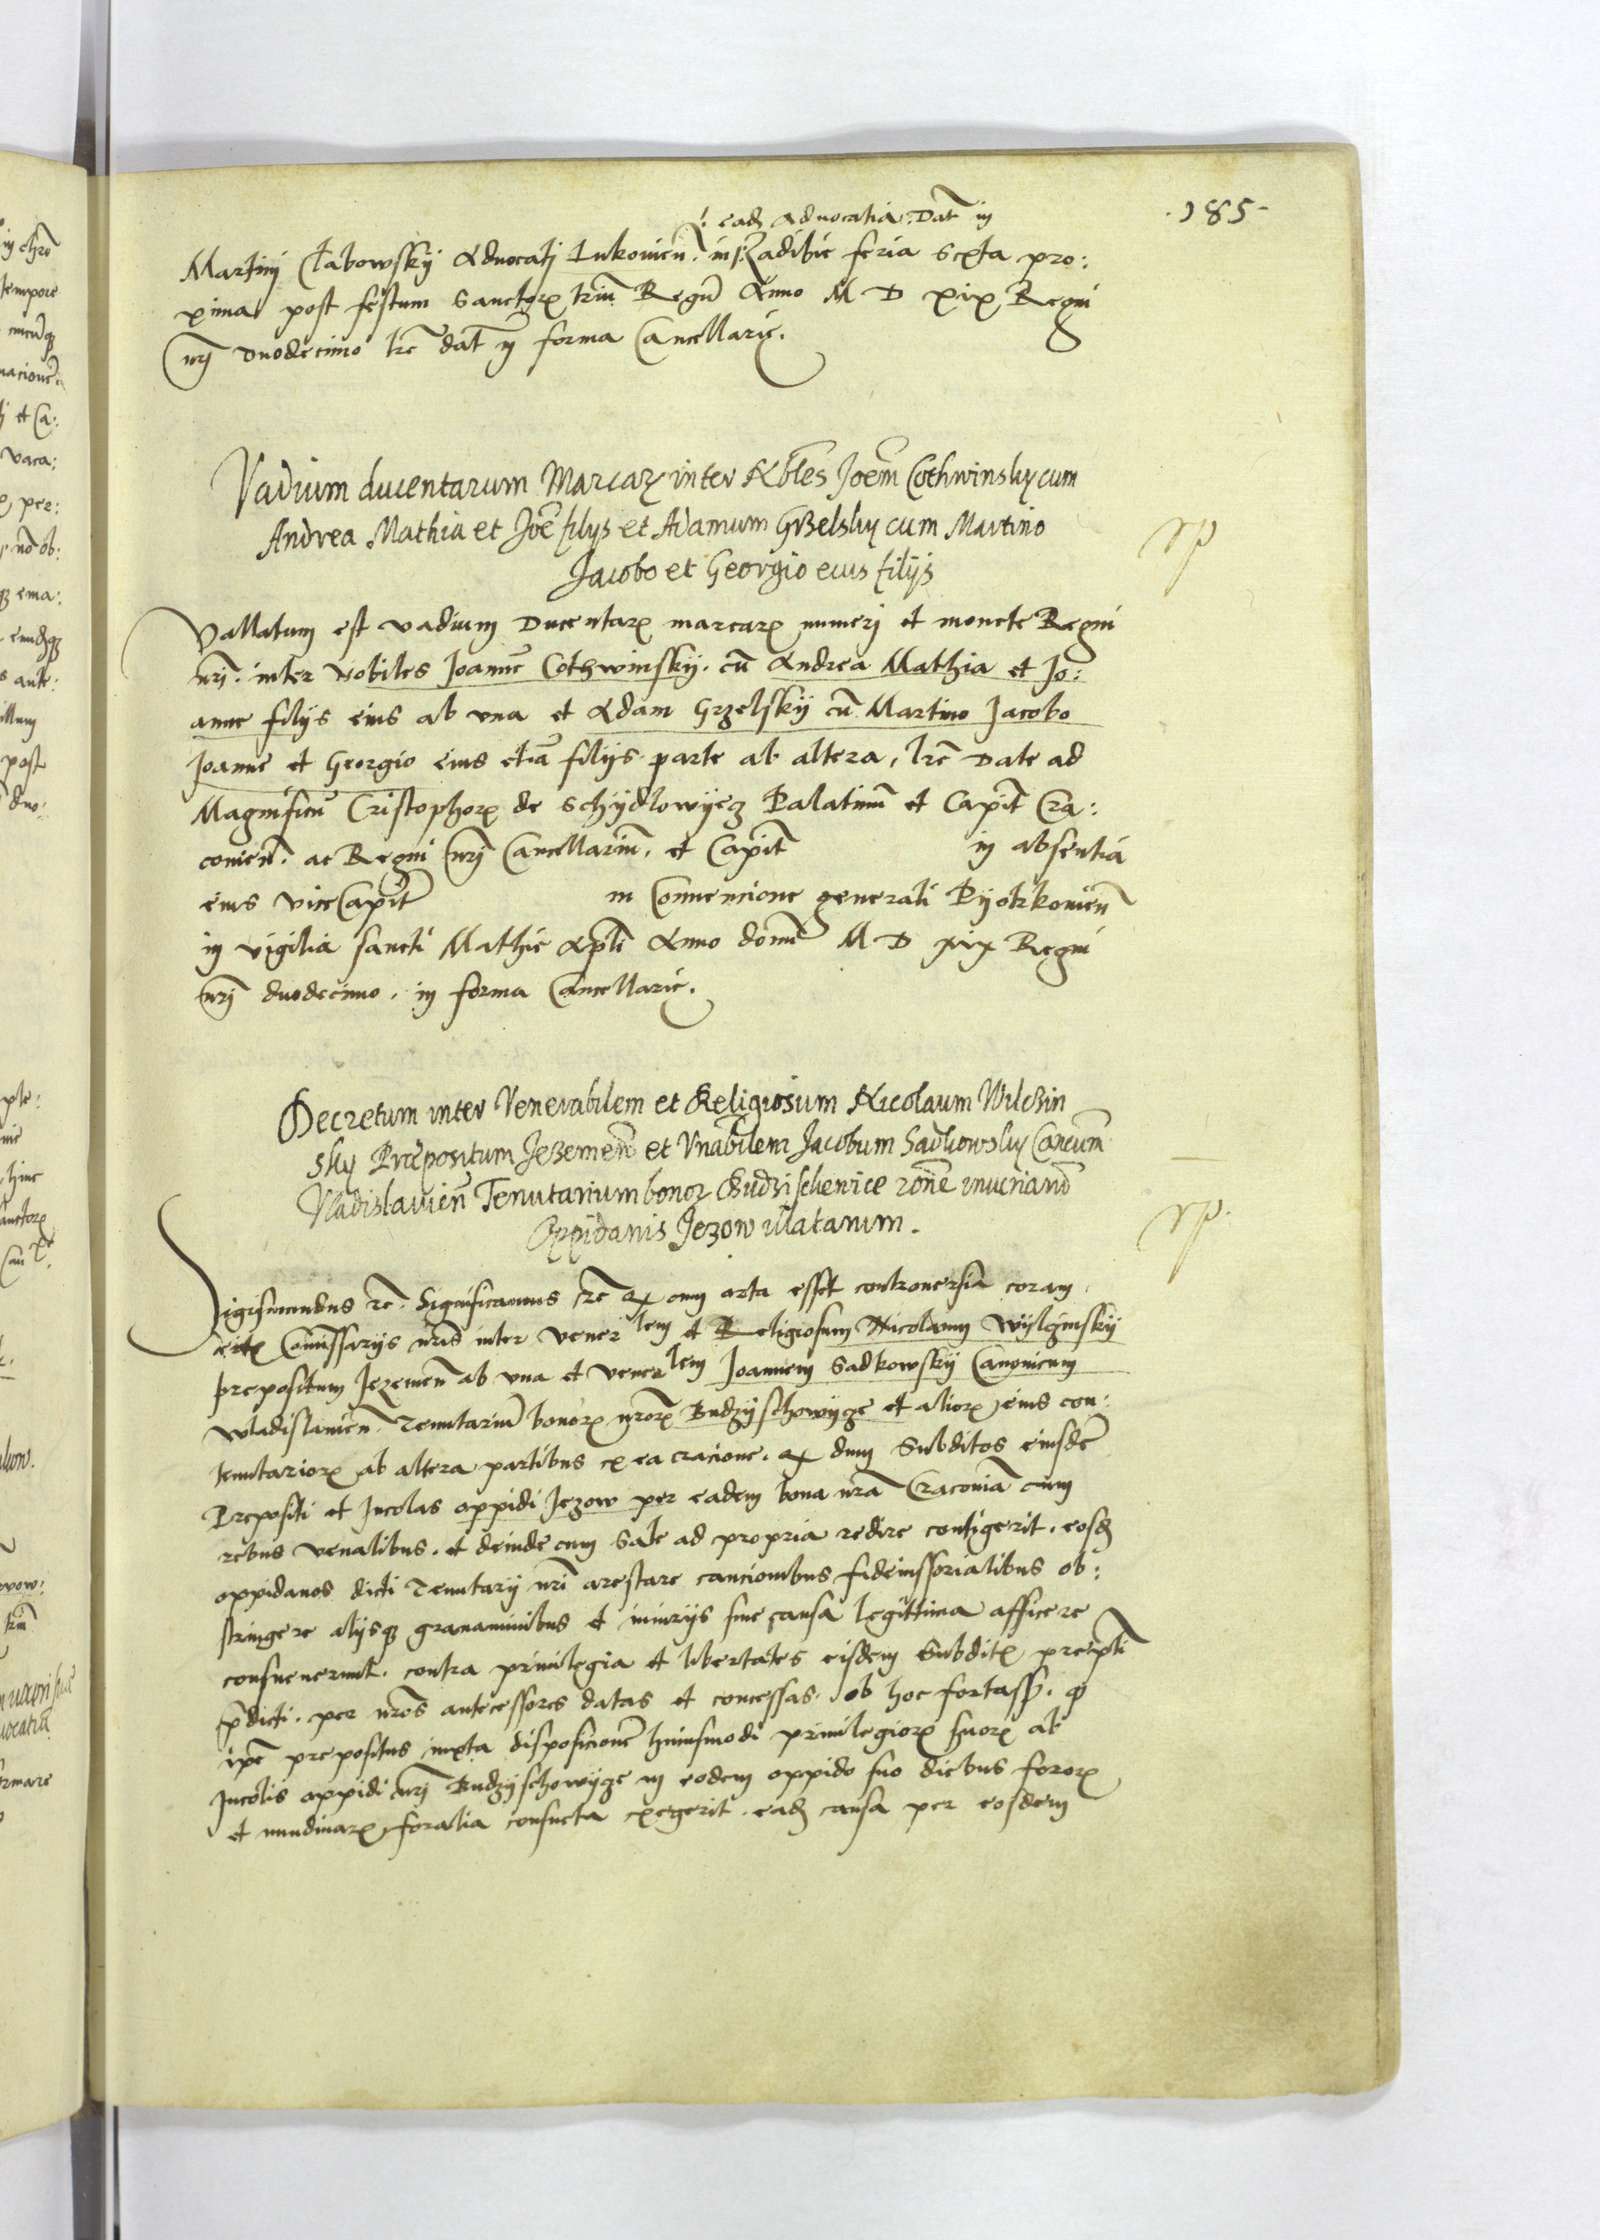 185
eadem Advocatia. Dat in
Martini Clabowskij Advocatj Lukovien. in Radihic feria sexta pro:
xima post festum Sanctorx triu Regu Anno M D xix Regni
nrj Duodecimo lre dat in forma Cancellarie.
Vadium ducentarum Marcarx inter Nbles Joem Cothwinsky cum
Andrea Mathia et Joe filijs et Adamum Grzelsky cum Martino
Jacobo et Georgio eius filijs
rp
Vallatum est vadium Ducentarx marcarx numerj et monete Regni
nrj. inter Nobiles Joanne Cothwinskij. cu Andrea Mathia et Jo:
anne filijs eius ab vna et Adam Grzelskij cu Martino Jacobo
Joanne et Georgio eius etia filijs parte ab altera, lre Date ad
Magnificu Cristophorx de Schijdlowijecz Palatinu et Capit Cra:
covien. ac Regni nrj Cancellariu, et Capit in absentia
eius viceCapit in Convencione generali Pijotrkovien
in vigilia sancti Mathie Apli Anno domi M D xix Regni
nrj duodecimo. in forma Cancellarie.
Decretum inter Venerabilem et Religiosum Nicolaum Wilczin
sky Præpositum Jezemen et Vnabilem Jacobum Sadkowsky Canicum
Vladislavien Tenutarium bonorx Budzischewice rone iniuriand
Oppidanis Jezow illatarum.
rp.
Sigismundus re. Significamus tre qx cum orta esset controversia coram
certx Comissarijs nris inter vener lem et Religiosum Nicolaum Wijlginskij
prepositum Jezemen ab vna et vener lem Joannem Sadkowskij Canonicum
Wladislavien. Tenutariu bonorx nrorx Budzijschowijze et aliorx eius con:
tenutariorx ab altera partibus ex ea racione. qx dum Subditos eiusde
Prepositi et Incolas oppidi Jezow per eadem bona nra Cracovia cum
rebus venalibus. et deinde cum Sale ad propria redire contigerit. eosdem
oppidanos dicti Tenutarij nri arestare caucionibus fideiussorialibus ob:
stringere alijsqz gravaminibus et iniurijs sine causa legittima afficere
consueverunt. contra privilegia et libertates eisdem Subditx prepti
pdicti. per nros antecessores datas et concessas. ob hoc fortass. q
ipe prepositus iuxta disposicione huiusmodi privilegiorx suorx ab
Incolis oppidi nrj Budzijschowijze in eodem oppido suo diebus fororx
et nundinarx foralia consueta exegerit. eadem causa per eosdem